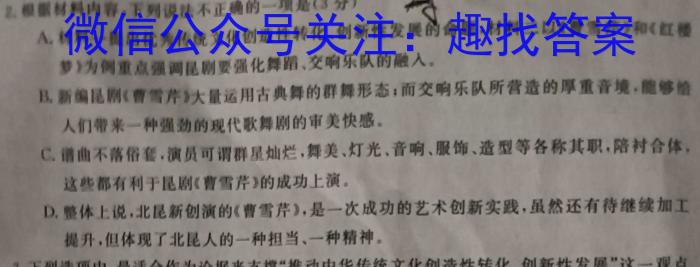 2.根据材料内容,下列说法不正确的一项是(3分)
微信公众号关注:趣找答案
A. 化 创造性转化 创新性发展的 和《红楼
梦》为例重点强调昆剧要强化舞蹈、交响乐队的融入。
B.新编昆剧《曹雪芹》大量运用古典舞的群舞形态;而交响乐队所营造的厚重音境,能够给
人们带来一种强劲的现代歌舞剧的审美快感。
C.谱曲不落俗套,演员可谓群星灿烂,舞美、灯光、音响、服饰、造型等各称其职,陪衬合体,
这些都有利于昆剧《曹雪芹》的成功上演。
D.整体上说,北昆新创演的《曹雪芹》,是一次成功的艺术创新实践,虽然还有待继续加工
提升,但体现了北昆人的一种担当、一种精神。
3.下列选项中,最适合作为论据来支撑“推动中华传统文化创造性转化、创新性发展”这一观点